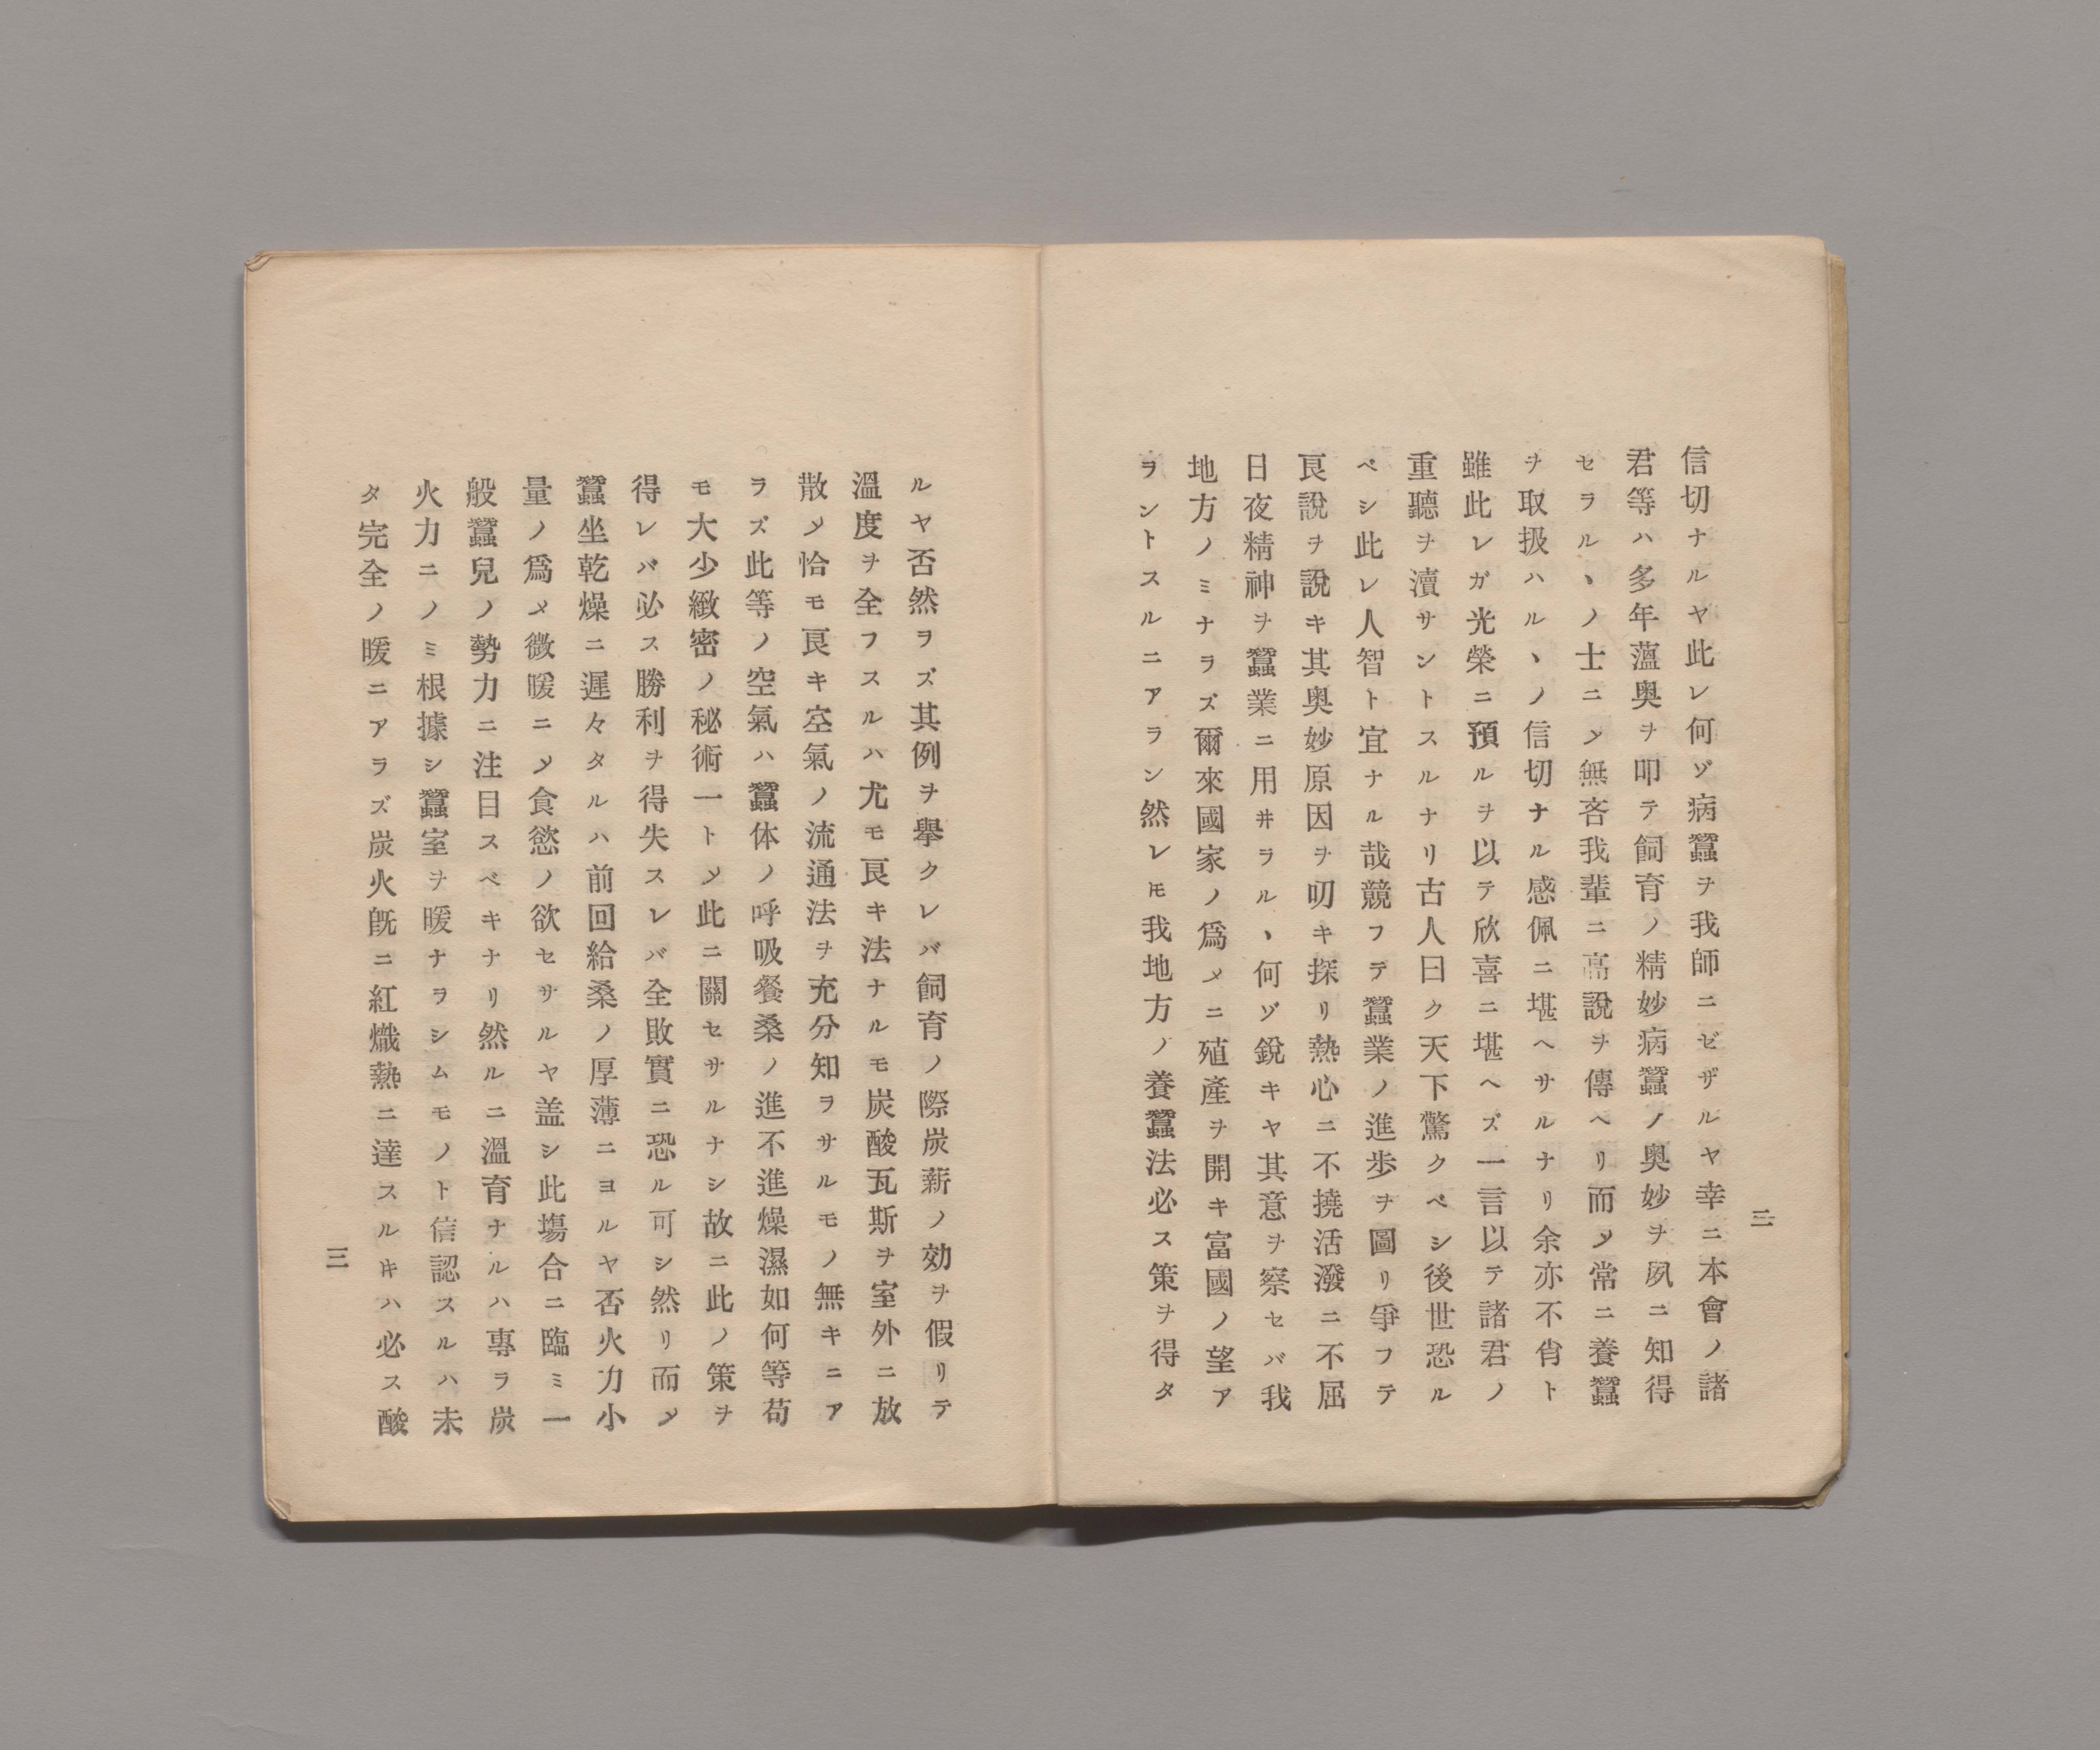 信切ナルヤ此レ何ゾ病蠶ヲ我師ニゼザルヤ幸ニ本會ノ諸
君等ハ多年蘊奥ヲ叩テ飼育ノ精妙病蠶ノ奥妙ヲ夙ニ知得
セラルヽノ士ニシテ無吝我輩ニ高說ヲ傳ヘリ而シテ常ニ養蠶
ヲ取扱ハルヽノ信切ナル感佩ニ堪ヘサルナリ余亦不肖ト
雖此レガ光榮ニ預ルヲ以テ欣喜ニ堪ヘズ一言以テ諸君ノ
重聽ヲ瀆サントスルナリ古人曰ク天下驚クベシ後世恐ル
ベシ此レ人智ト宜ナル哉競フテ蠶業ノ進歩ヲ圖リ爭フテ
良說ヲ說キ其奥妙原因ヲ叨キ探リ熱心ニ不撓活潑ニ不屈
日夜精神ヲ蠶業ニ用井ラルヽ何ゾ銳キヤ其意ヲ察セバ我
地方ノミナラズ爾來國家ノ爲メニ殖產ヲ開キ富國ノ望ア
ラントスルニアラン然レ𪜈我地方ノ養蠶法必ス策ヲ得タ
二
ルヤ否然ヲズ其例ヲ擧クレバ飼育ノ際炭薪ノ効ヲ假リテ
溫度ヲ全フスルハ尤モ良キ法ナルモ炭酸瓦斯ヲ室外ニ放
散シテ恰モ良キ空氣ノ流通法ヲ充分知ヲサルモノ無キニア
ラズ此等ノ空氣ハ蠶体ノ呼吸餐桑ノ進不進燥濕如何等苟
モ大少緻密ノ秘術一トシテ此ニ關セサルナシ故ニ此ノ策ヲ
得レバ必ス勝利ヲ得失スレバ全敗實ニ恐ル可シ然リ而シテ
蠶坐乾燥ニ遲々タルハ前回給桑ノ厚薄ニヨルヤ否火力小
量ノ爲メ微暖ニシテ食慾ノ欲セサルヤ盖シ此塲合ニ臨ミ一
般蠶兒ノ勢力ニ注目スベキナリ然ルニ溫育ナルハ專ラ炭
火力ニノミ根據シ蠶室ヲ暖ナラシムモノト信認スルハ未
タ完全ノ暖ニアラズ炭火旣ニ紅熾熱ニ達スル𪜈ハ必ス酸
三